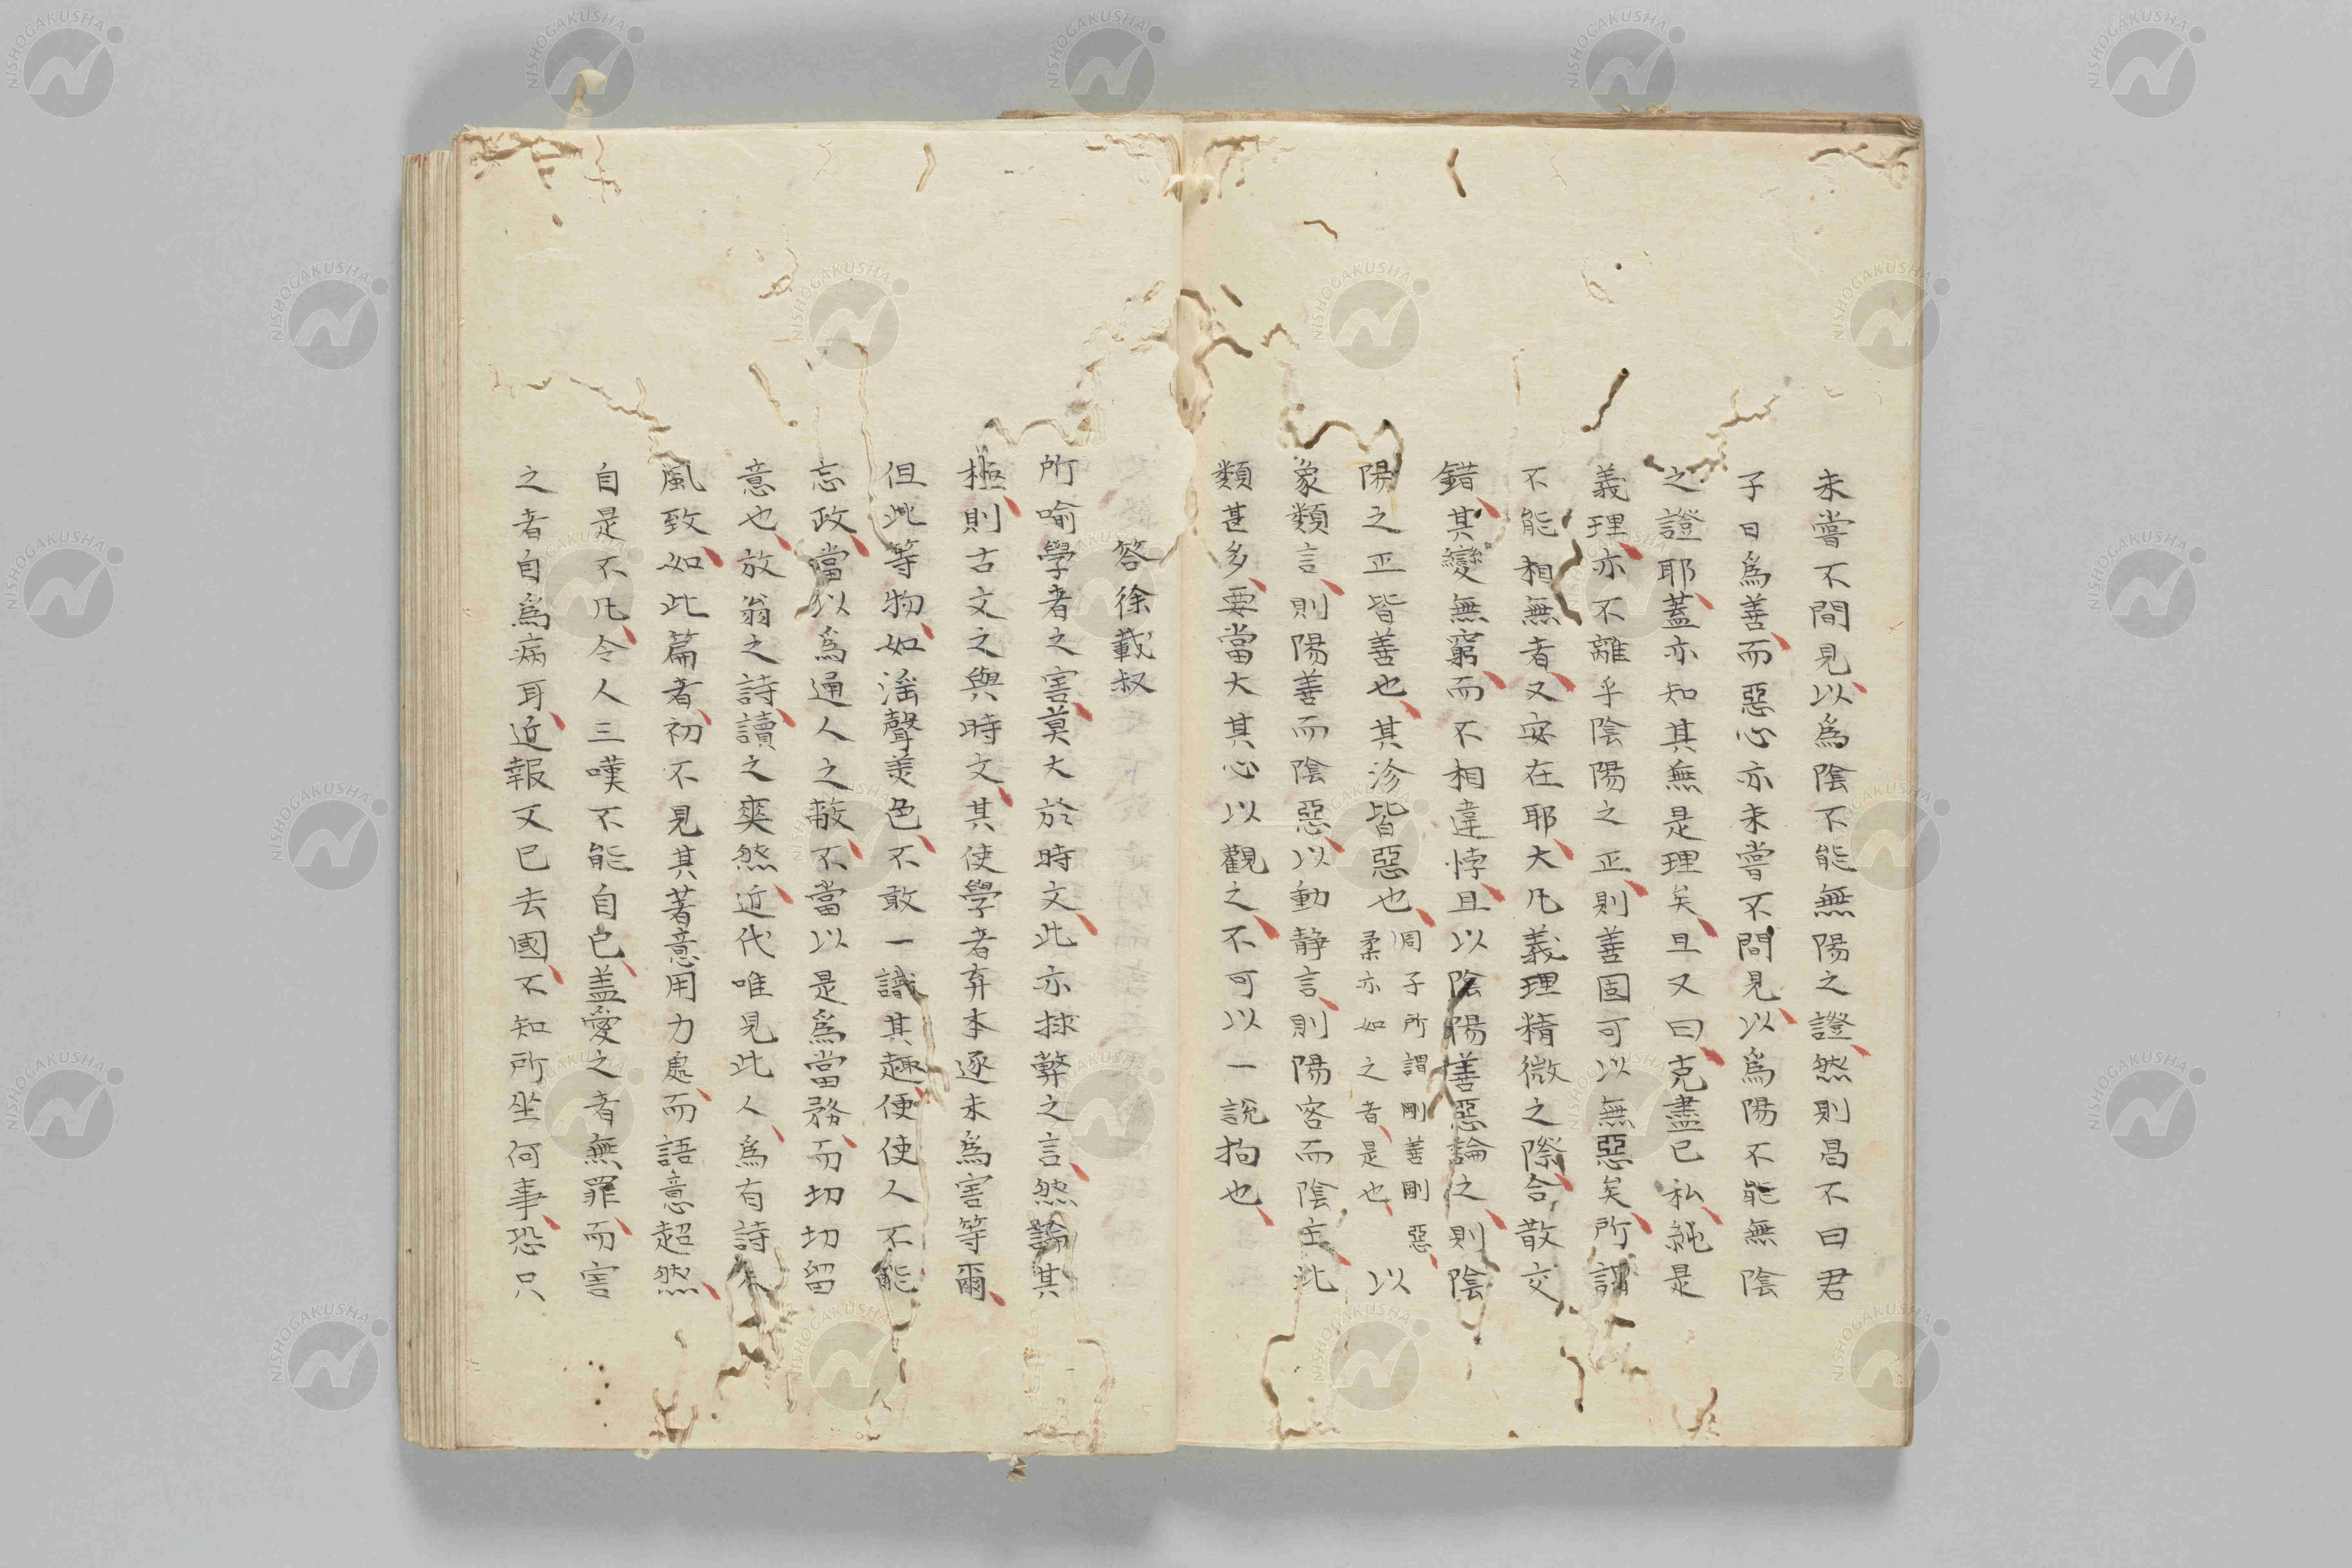 未嘗不間見以爲陰不能無陽之證然則曷不曰君
子曰爲善而惡心亦未嘗不間見以爲陽不能無陰
之證耶蓋亦知其無是理矣且又曰克盡己私純是
義理亦不離乎陰陽之正則善固可以無惡矣所謂
不能相無者又安在耶大凡義理精微之際合散交
錯其變無窮而不相違悖且以陰陽善惡論之則陰
陽之正皆善也其沴皆惡也周子所謂剛善剛惡柔亦如之者是也以
象類言則陽善而陰惡以動静言則陽客而陰主此
類甚多要當大其心以觀之不可以一說拘也
答徐載叔
所喻學者之害莫大於時文此亦捄弊之言然論其
極則古文之與時文其使學者弃本逐末爲害等爾
但此等物如滛聲美色不敢一識其趣便使人不能
忘政當以爲通人之蔽不當以是爲當務而切切留
意也放翁之詩讀之爽然近代唯見此人爲有詩人
風致如此篇者初不見其著意用力處而語意超然
自是不凡令人三嘆不能自已盖愛之者無罪而害
之者自爲病耳近報又已去國不知所坐何事恐只
NISHOGAKUSHA